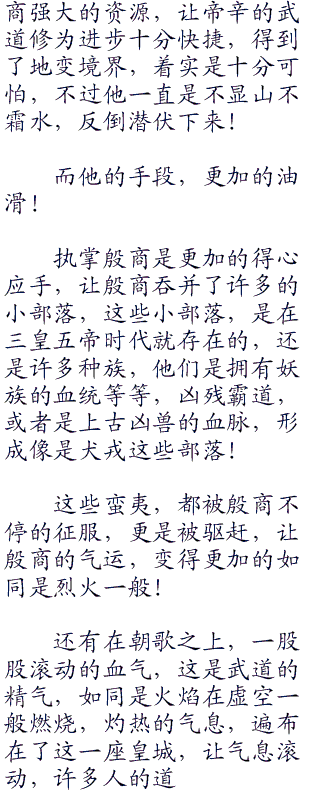 商强大的资源，让帝辛的武
道修为进步十分快捷，得到
了地变境界，着实是十分可
怕，不过他一直是不显山不
霜水，反倒潜伏下来！
而他的手段，更加的油
滑！
执掌殷商是更加的得心
应手，让殷商吞并了许多的
小部落，这些小部落，是在
三皇五帝时代就存在的，还
是许多种族，他们是拥有妖
族的血统等等，凶残霸道，
或者是上古凶兽的血脉，形
成像是犬戎这些部落！
这些蛮夷，都被殷商不
停的征服，更是被驱赶，让
殷商的气运，变得更加的如
同是烈火一般！
还有在朝歌之上，一股
股滚动的血气，这是武道的
精气，如同是火焰在虚空一
般燃烧，灼热的气息，遍布
在了这一座皇城，让气息滚
动，许多人的道